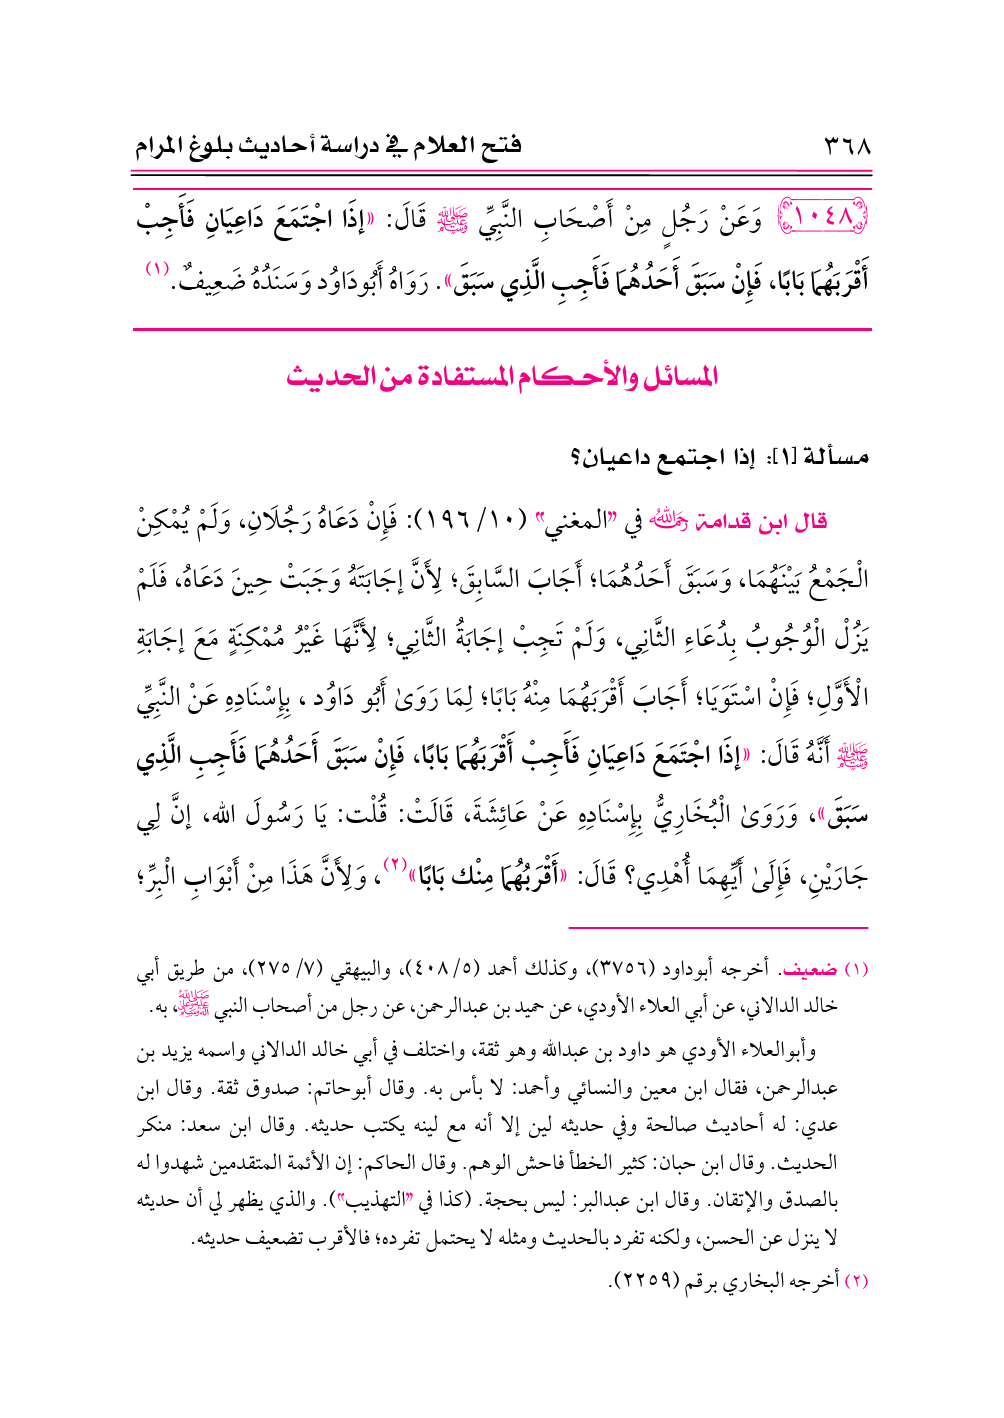 ٣٦٨ فتح العلام في دراسة أحاديث بلوغ المرام
١٠٤٨ وَعَنْ رَجُلٍ مِنْ أَصْحَابِ النَّبِيِّ ﷺ قَالَ: «إِذَا اجْتَمَعَ دَاعِيَانِ فَأَجِبْ
أَقْرَبَهُمَا بَابًا، فَإِنْ سَبَقَ أَحَدُهُمَا فَأَجِبِ الَّذِي سَبَقَ». رَوَاهُ أَبُودَاوُد وَسَنَدُهُ ضَعِيفٌ. (١)
المسائل والأحكام المستفادة من الحديث
مسألة [١]: إذا اجتمع داعيان؟
قال ابن قدامة رحمه الله في "المغني" (١٠/ ١٩٦): فَإِنْ دَعَاهُ رَجُلَانِ، وَلَمْ يُمْكِنْ
الْجَمْعُ بَيْنَهُمَا، وَسَبَقَ أَحَدُهُمَا؛ أَجَابَ السَّابِقَ؛ لِأَنَّ إجَابَتَهُ وَجَبَتْ حِينَ دَعَاهُ، فَلَمْ
يَزُلْ الْوُجُوبُ بِدُعَاءِ الثَّانِي، وَلَمْ تَجِبْ إجَابَةُ الثَّانِي؛ لِأَنَّهَا غَيْرُ مُمْكِنَةٍ مَعَ إجَابَةِ
الْأَوَّلِ؛ فَإِنْ اسْتَوَيَا؛ أَجَابَ أَقْرَبَهُمَا مِنْهُ بَابًا؛ لِمَا رَوَىٰ أَبُو دَاوُد ، بِإِسْنَادِهِ عَنْ النَّبِيِّ
ﷺ أَنَّهُ قَالَ: «إذَا اجْتَمَعَ دَاعِيَانِ فَأَجِبْ أَقْرَبَهُمَا بَابًا، فَإِنْ سَبَقَ أَحَدُهُمَا فَأَجِبِ الَّذِي
سَبَقَ»، وَرَوَىٰ الْبُخَارِيُّ بِإِسْنَادِهِ عَنْ عَائِشَةَ، قَالَتْ: قُلْت: يَا رَسُولَ الله، إنَّ لِي
جَارَيْنِ، فَإِلَىٰ أَيِّهِمَا أُهْدِي؟ قَالَ: «أَقْرَبُهُمَا مِنْك بَابًا»(٢)، وَلِأَنَّ هَذَا مِنْ أَبْوَابِ الْبِرِّ؛
(١) ضعيف. أخرجه أبوداود (٣٧٥٦)، وكذلك أحمد (٥/ ٤٠٨)، والبيهقي (٧/ ٢٧٥)، من طريق أبي
خالد الدالاني، عن أبي العلاء الأودي، عن حميد بن عبدالرحمن، عن رجل من أصحاب النبي ﷺ، به.
وأبوالعلاء الأودي هو داود بن عبدالله وهو ثقة، واختلف في أبي خالد الدالاني واسمه يزيد بن
عبدالرحمن، فقال ابن معين والنسائي وأحمد: لا بأس به. وقال أبوحاتم: صدوق ثقة. وقال ابن
عدي: له أحاديث صالحة وفي حديثه لين إلا أنه مع لينه يكتب حديثه. وقال ابن سعد: منكر
الحديث. وقال ابن حبان: كثير الخطأ فاحش الوهم. وقال الحاكم: إن الأئمة المتقدمين شهدوا له
بالصدق والإتقان. وقال ابن عبدالبر: ليس بحجة. (كذا في "التهذيب"). والذي يظهر لي أن حديثه
لا ينزل عن الحسن، ولكنه تفرد بالحديث ومثله لا يحتمل تفرده؛ فالأقرب تضعيف حديثه.
(٢) أخرجه البخاري برقم (٢٢٥٩).